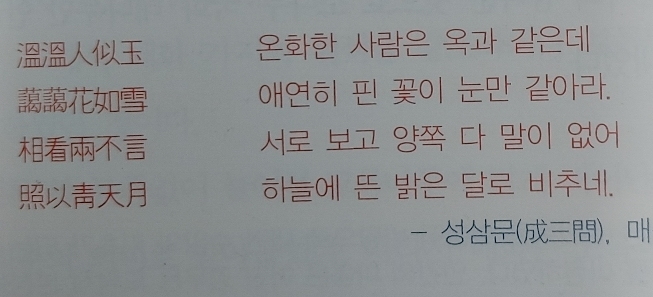 溫溫人似玉 온화한 사람은 옥과 같은데
藹藹花如雪 애연히 핀 꽃이 눈만 같아라.
相看兩不言 서로 보고 양쪽 다 말이 없어
照以靑天月 하늘에 뜬 밝은 달로 비추네.
- 성삼문(成三問), 매